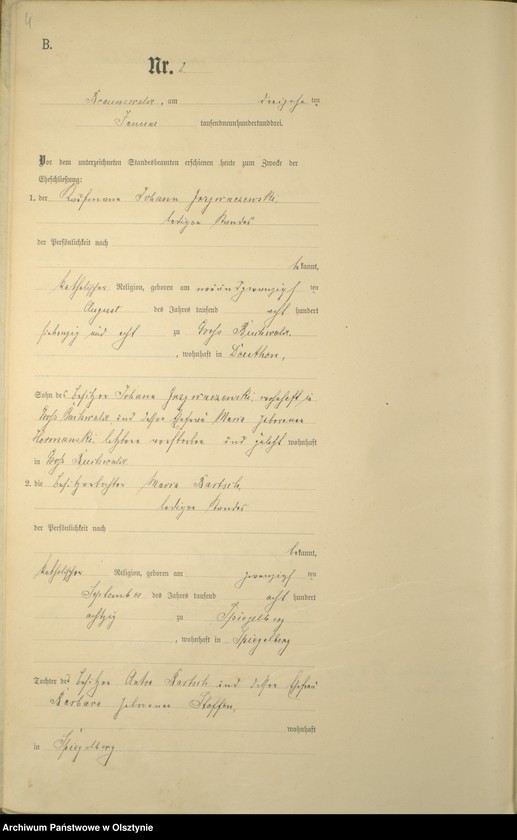 4
B.
Nr. 2
Braunswalde, am dreizehn ten
Januar tausendneunhundertunddrei.
Vor dem unterzeichneten Standesbeamten erschienen heute zum Zwecke der
Eheschließung:
1. der Kaufmann Johann
ledigen Standes
der Persönlichkeit nach
bekannt,
katholischer Religion, geboren am neunundzwanzigst ten
August des Jahres tausend acht hundert
siebenzig und acht zu Groß
, wohnhaft in
Sohn des Besitzer Johann wohnhaft in
Groß und dessen Ehefrau Maria geborenen
letztere verstorben und zuletzt wohnhaft
in Groß
2. die Besitzertochter Maria Bartsch,
ledigen Standes
der Persönlichkeit nach
bekannt,
katholischer Religion, geboren am zwanzigst ten
September des Jahres tausend acht hundert
achtzig zu Spiegelberg
, wohnhaft in Spiegelberg
Tochter des Besitzer Anton Bartsch und dessen Ehefrau
Barbara geborenen Steffen,
wohnhaft
in Spiegelberg
Archiwum Państwowe w Olsztynie